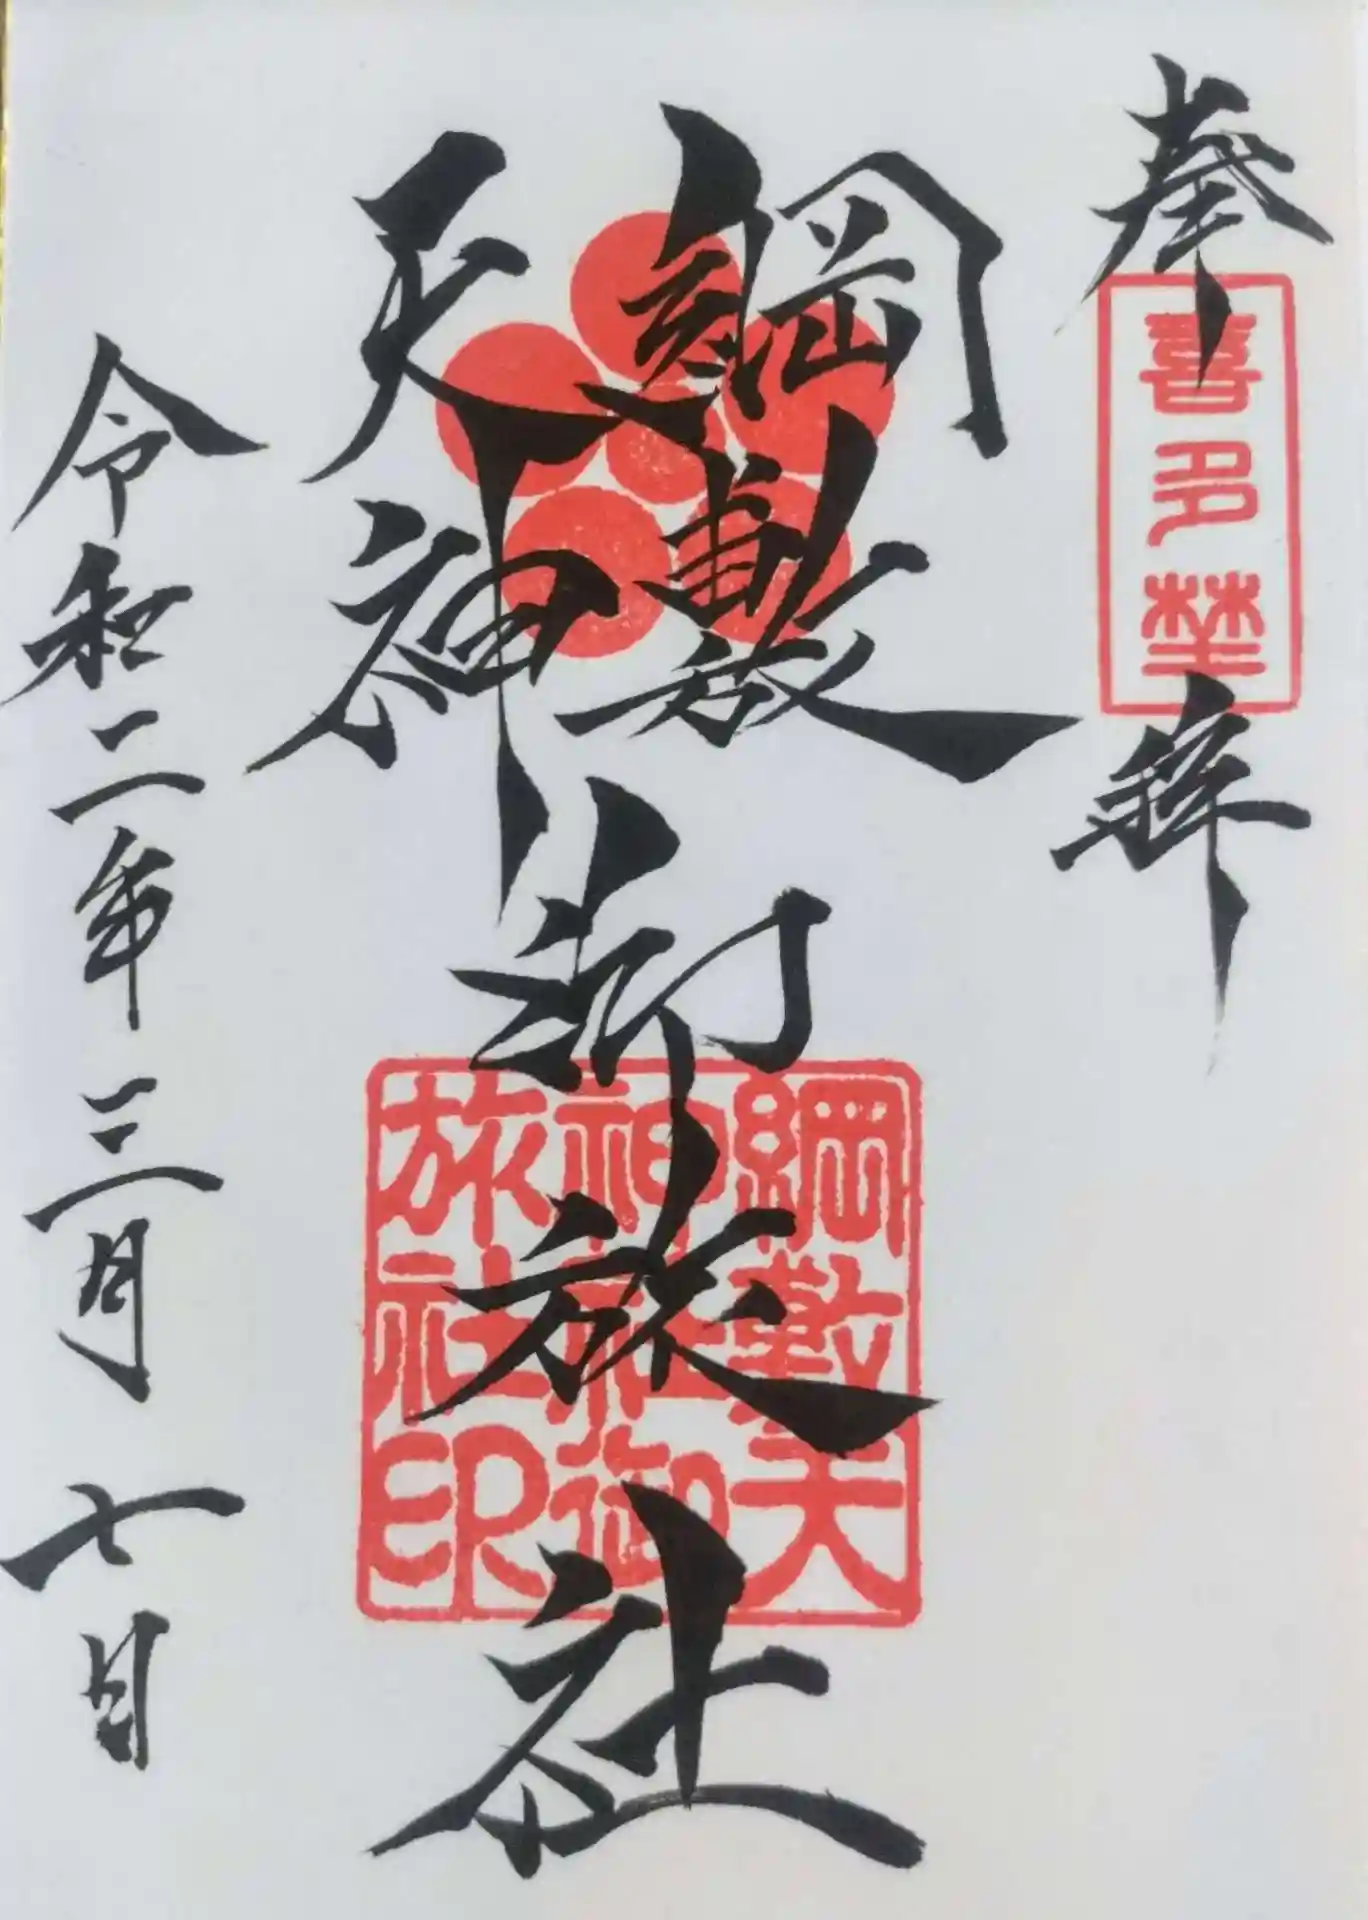 奉拝
喜多埜
綱敷
天神
御旅社
綱敷天
神社御
旅社印
令和二年三月七日